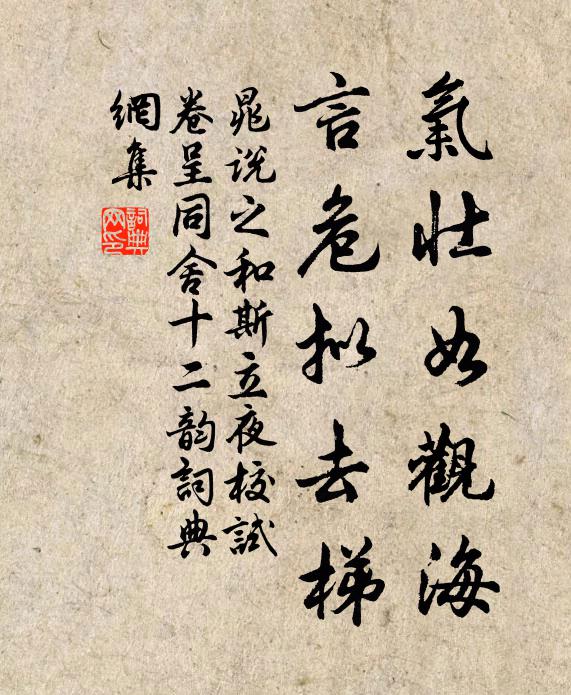 氣壯如觀海
言危拟去梯
晁说之和斯立夜校試
卷呈同舍十二韵詞典
網集
詞典网印